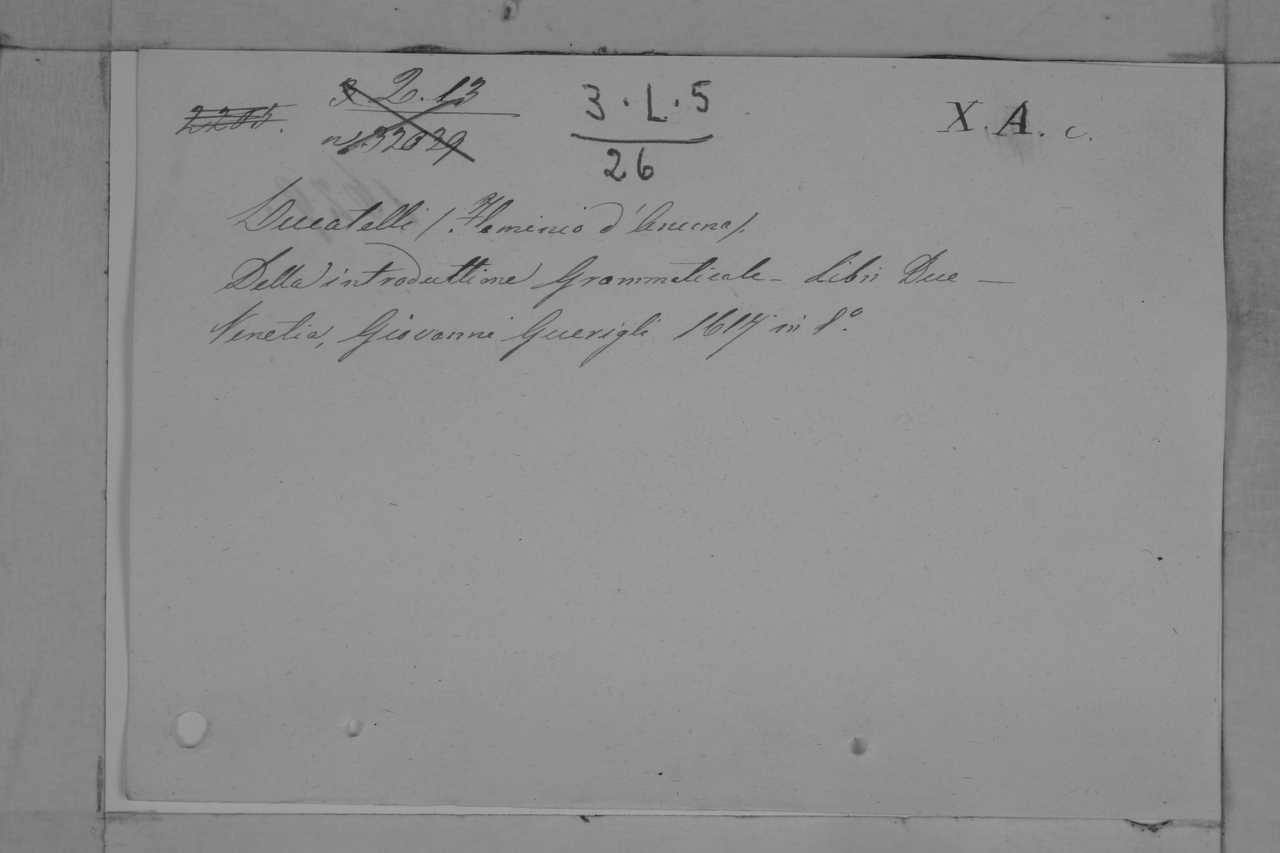 2205. 3.2.13 3.L.5 X.A.c.
n. 32029 26
Ducatelli (Flaminio d'Ancona).
Della introduttione Grammaticale - Libri Due —
Venetia, Giovanni Guerigli 1617 in 8°.